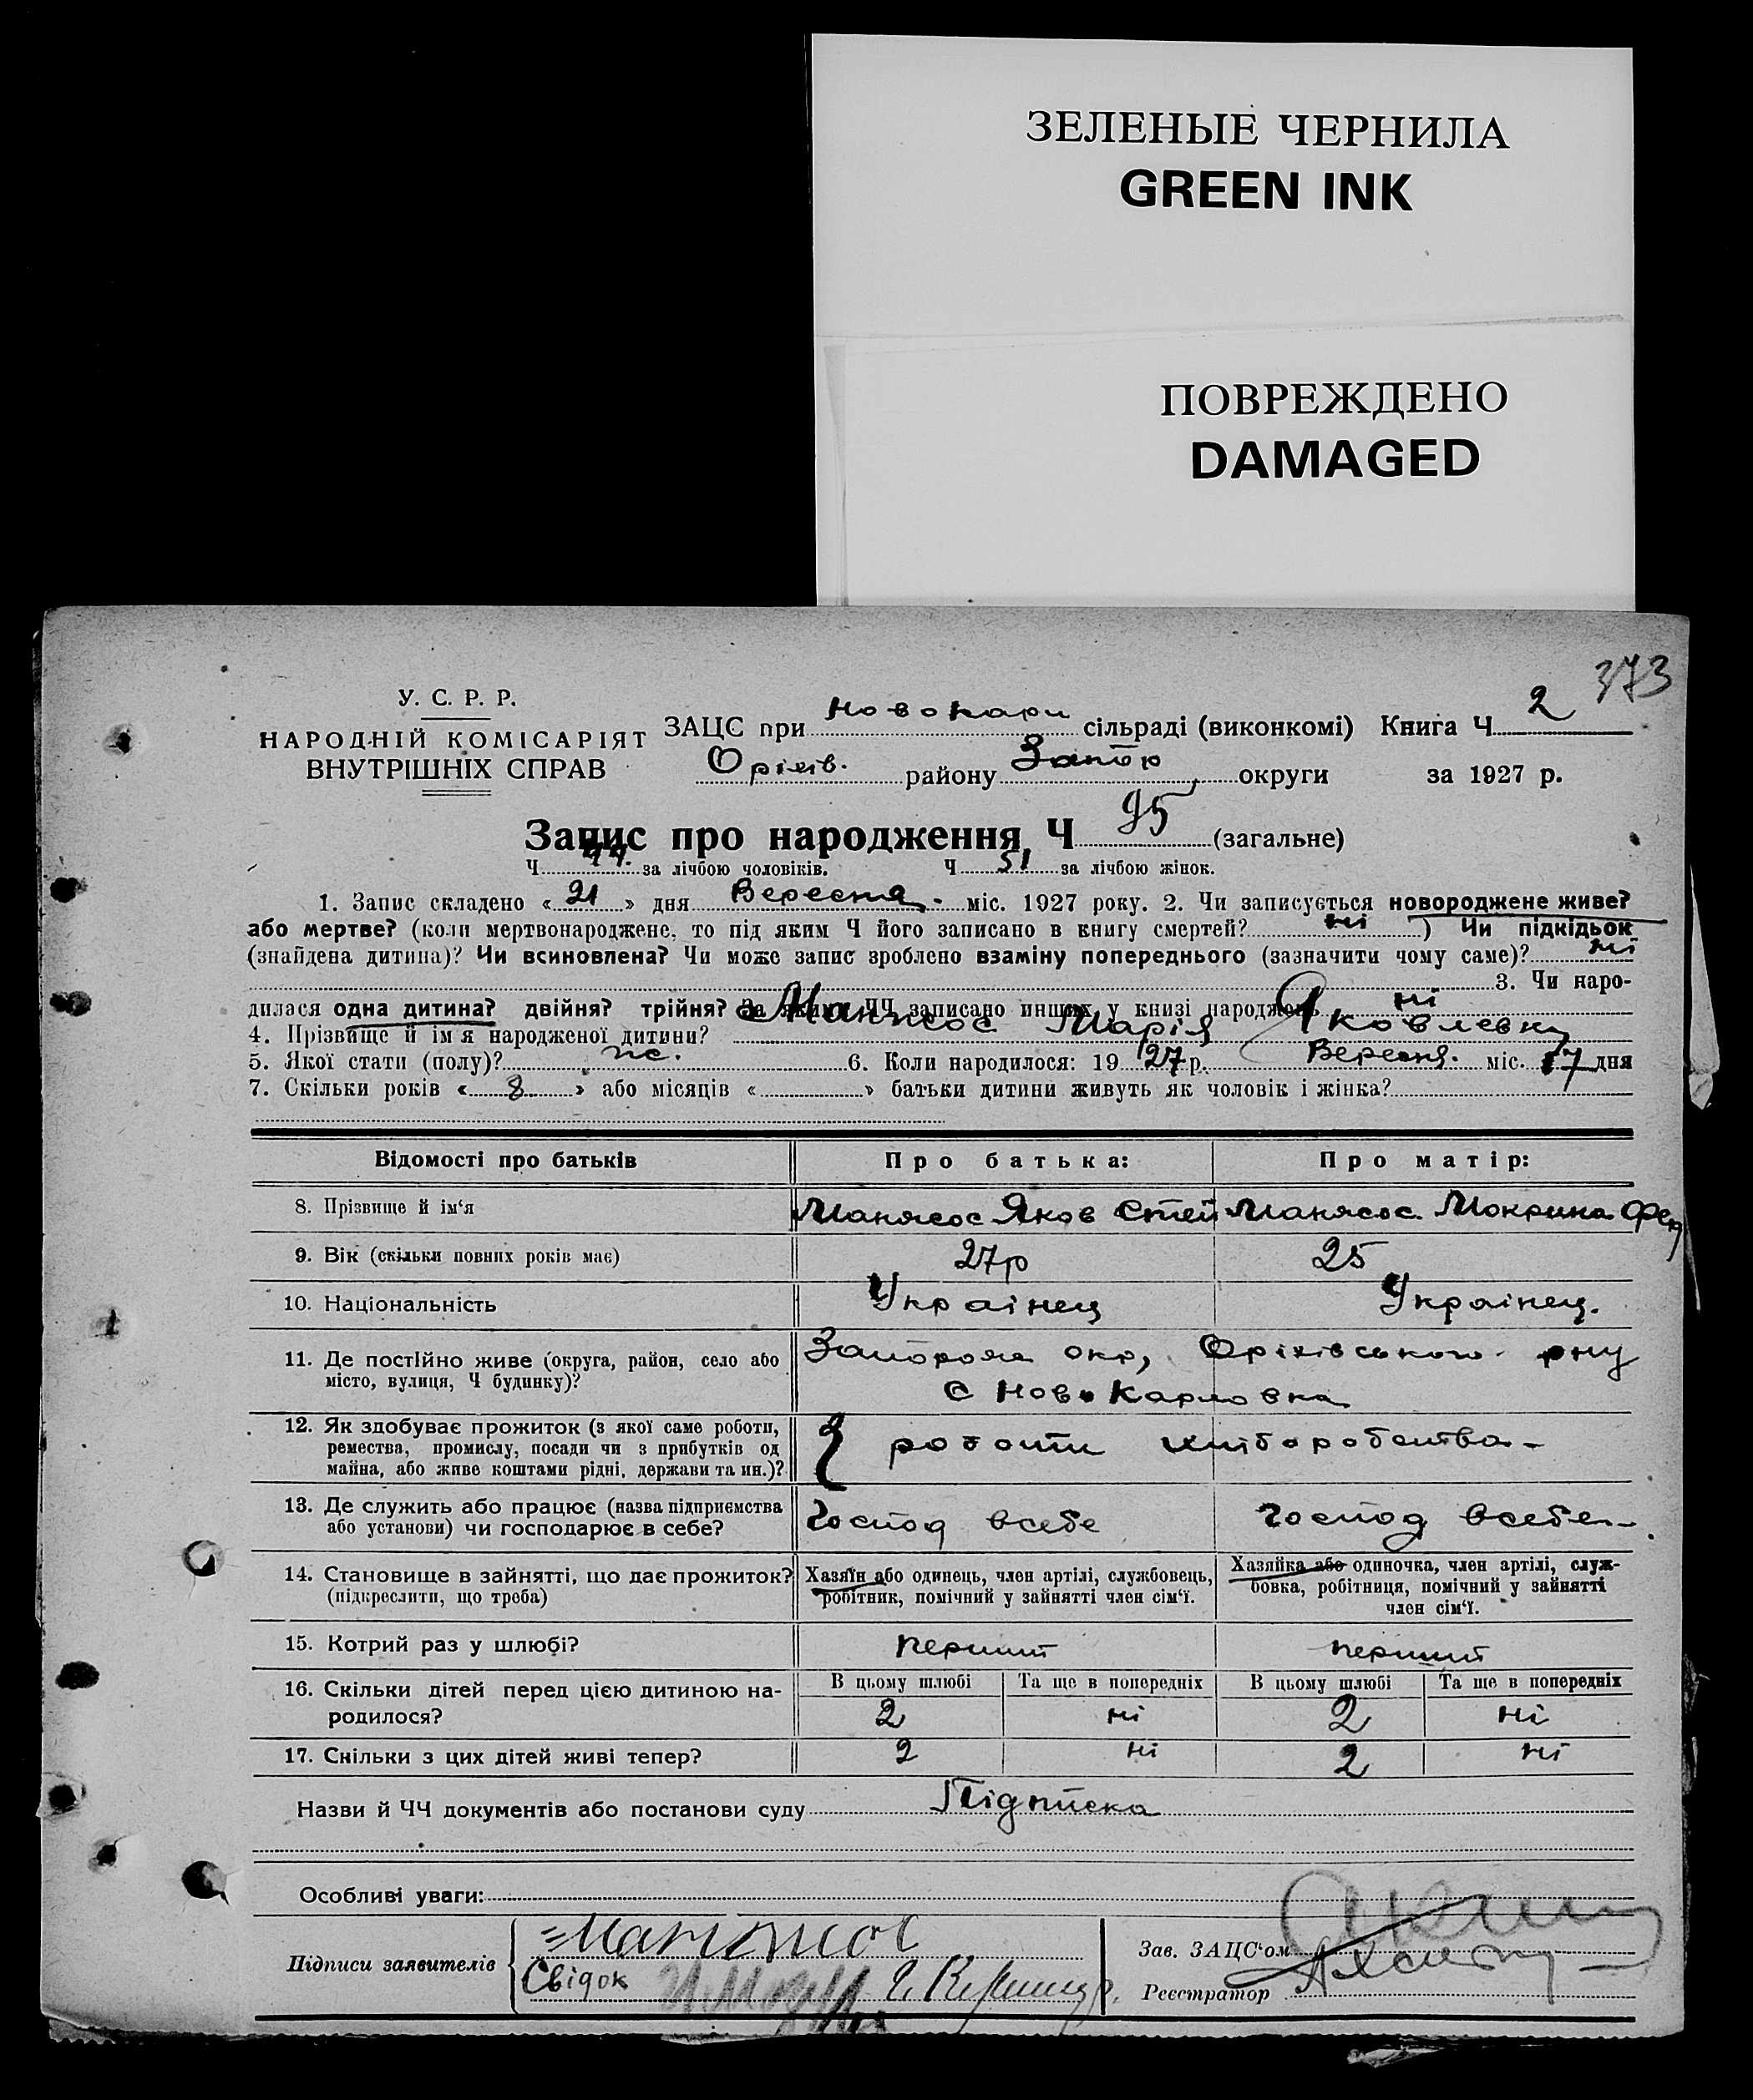 ЗЕЛЕНЫЕ ЧЕРНИЛА
GREEN INK
ПОВРЕЖДЕНО
DAMAGED
373
У. С. Р. Р.
НАРОДНІЙ КОМІСАРІЯТ
ВНУТРІШНІХ СПРАВ
ЗАЦС при Новокарл сільраді (виконкомі) Книга Ч. 2
Оріхів. району Запор округи за 1927 р.
Запис про народження Ч 95 (загальне)
Ч. 44. за лічбою чоловіків. Ч. 51 за лічбою жінок.
1. Запис складено «21» дня Вересня міс. 1927 року. 2. Чи записується новороджене живе?
або мертве? (коли мертвонароджене, то під яким Ч його записано в книгу смертей? ні ) Чи підкідьок
(знайдена дитина)? Чи всиновлена? Чи може запис зроблено взаміну попереднього (зазначити чому саме)? ні
3. Чи наро-
дилася одна дитина? двійня? трійня? За якими ЧЧ записано инших у книзі народжень ні
4. Прізвище й ім'я народженої дитини? Манжос Марія Яковлевну
5. Якої стати (полу)? ж. 6. Коли народилося: 1927 р. Вересня. міс. 17 дня
7. Скільки років «8» або місяців « » батьки дитини живуть як чоловік і жінка?
Відомості про батьків Про батька: Про матір:
8. Прізвище й ім'я Манжос Яков Степ Манжос Мокрина Фед
9. Вік (скільки повних років має) 27р 25
10. Національність Українец Українец.
11. Де постійно живе (округа, район, село або
місто, вулиця, Ч будинку)? Запорож окр, Оріхівського рну
с НовоКарловка
12. Як здобуває прожиток (з якої саме роботи,
ремества, промислу, посади чи з прибутків од
майна, або живе коштами рідні, держави та ин.)? роботи хліборобства
13. Де служить або працює (назва підприємства
або установи) чи господарює в себе? Господ всебе Господ всебе
14. Становище в зайнятті, що дає прожиток?
(підкреслити, що треба)
Хазяїн або одинець, член артілі, службовець,
робітник, помічний у зайнятті член сім'ї.
Хазяйка або одиночка, член артілі, служ-
бовка, робітниця, помічний у зайнятті
член сім'ї.
15. Котрий раз у шлюбі? перший перший
16. Скільки дітей перед цією дитиною на-
родилося?
В цьому шлюбі Та ще в попередніх В цьому шлюбі Та ще в попередніх
2 ні 2 ні
17. Скільки з цих дітей живі тепер? 2 ні 2 ні
Назви й ЧЧ документів або постанови суду Підписка
Особливі уваги:
Підписи заявителів Манжос
Свідок
Зав. ЗАЦС'ом
Реєстратор